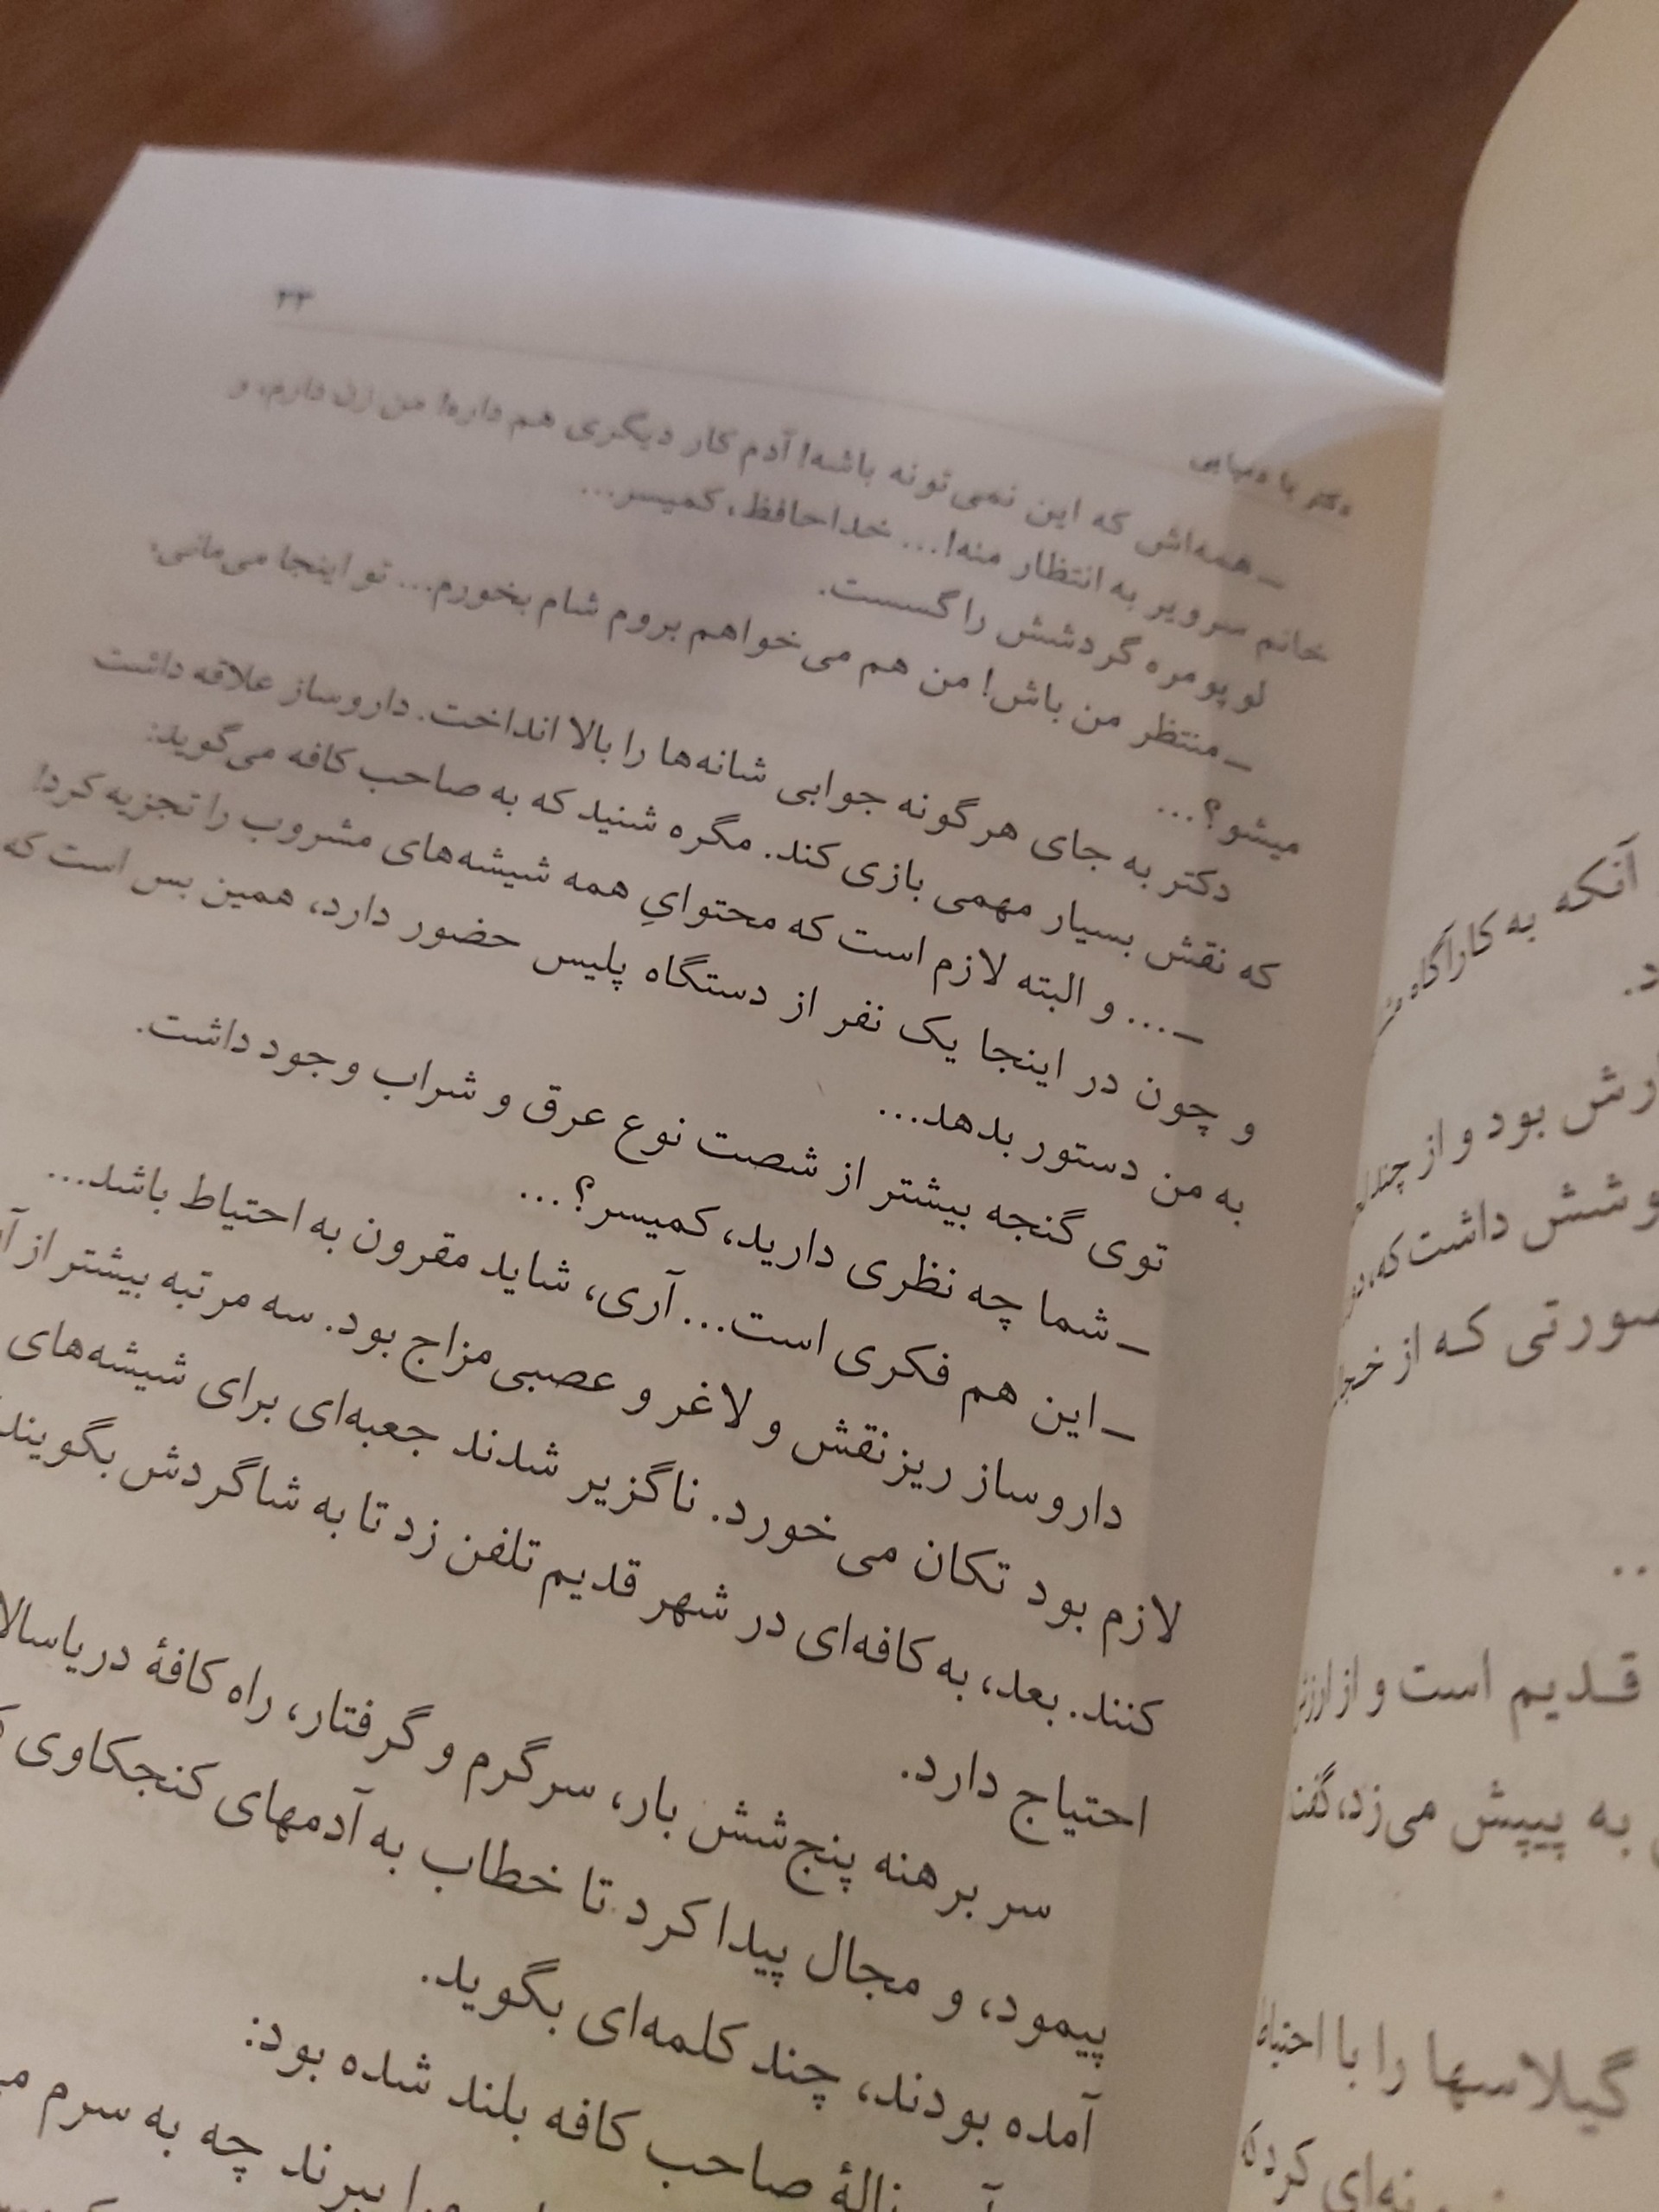 ۲۳
دکتر با دمپایی
ـ همه‌اش که این نمی‌تونه باشه! آدم کار دیگری هم داره! من زن دارم، و
خانم سرویر به انتظار منه!... خداحافظ، کمیسر...
لوپومره گردشش را گسست.
ـ منتظر من باش! من هم می‌خواهم بروم شام بخورم... تو اینجا می‌مانی،
میشو؟...
دکتر به جای هرگونه جوابی شانه‌ها را بالا انداخت. داروساز علاقه داشت
که نقش بسیار مهمی بازی کند. مگره شنید که به صاحب کافه می‌گوید:
ـ ... و البته لازم است که محتوایِ همه شیشه‌های مشروب را تجزیه کرد!
و چون در اینجا یک نفر از دستگاه پلیس حضور دارد، همین بس است که
به من دستور بدهد...
توی گنجه بیشتر از شصت نوع عرق و شراب وجود داشت.
ـ شما چه نظری دارید، کمیسر؟...
ـ این هم فکری است... آری، شاید مقرون به احتیاط باشد...
داروساز ریزنقش و لاغر و عصبی‌مزاج بود. سه مرتبه بیشتر از
لازم بود تکان می‌خورد. ناگزیر شدند جعبه‌ای برای شیشه‌های
کنند. بعد، به کافه‌ای در شهر قدیم تلفن زد تا به شاگردش بگویند
احتیاج دارد.
سر برهنه پنج‌شش بار، سرگرم و گرفتار، راه کافهٔ
پیمود، و مجال پیدا کرد تا خطاب به آدمهای کنجکاوی
آمده بودند، چند کلمه‌ای بگوید.
نالهٔ صاحب کافه بلند شده بود:
ببرند چه به سرم
آنکه به کارآگاه
د.
بود و از
داشت که،
که از
..
قدیم است و از
به پیپش می‌زد، گفت
گیلاسها را با